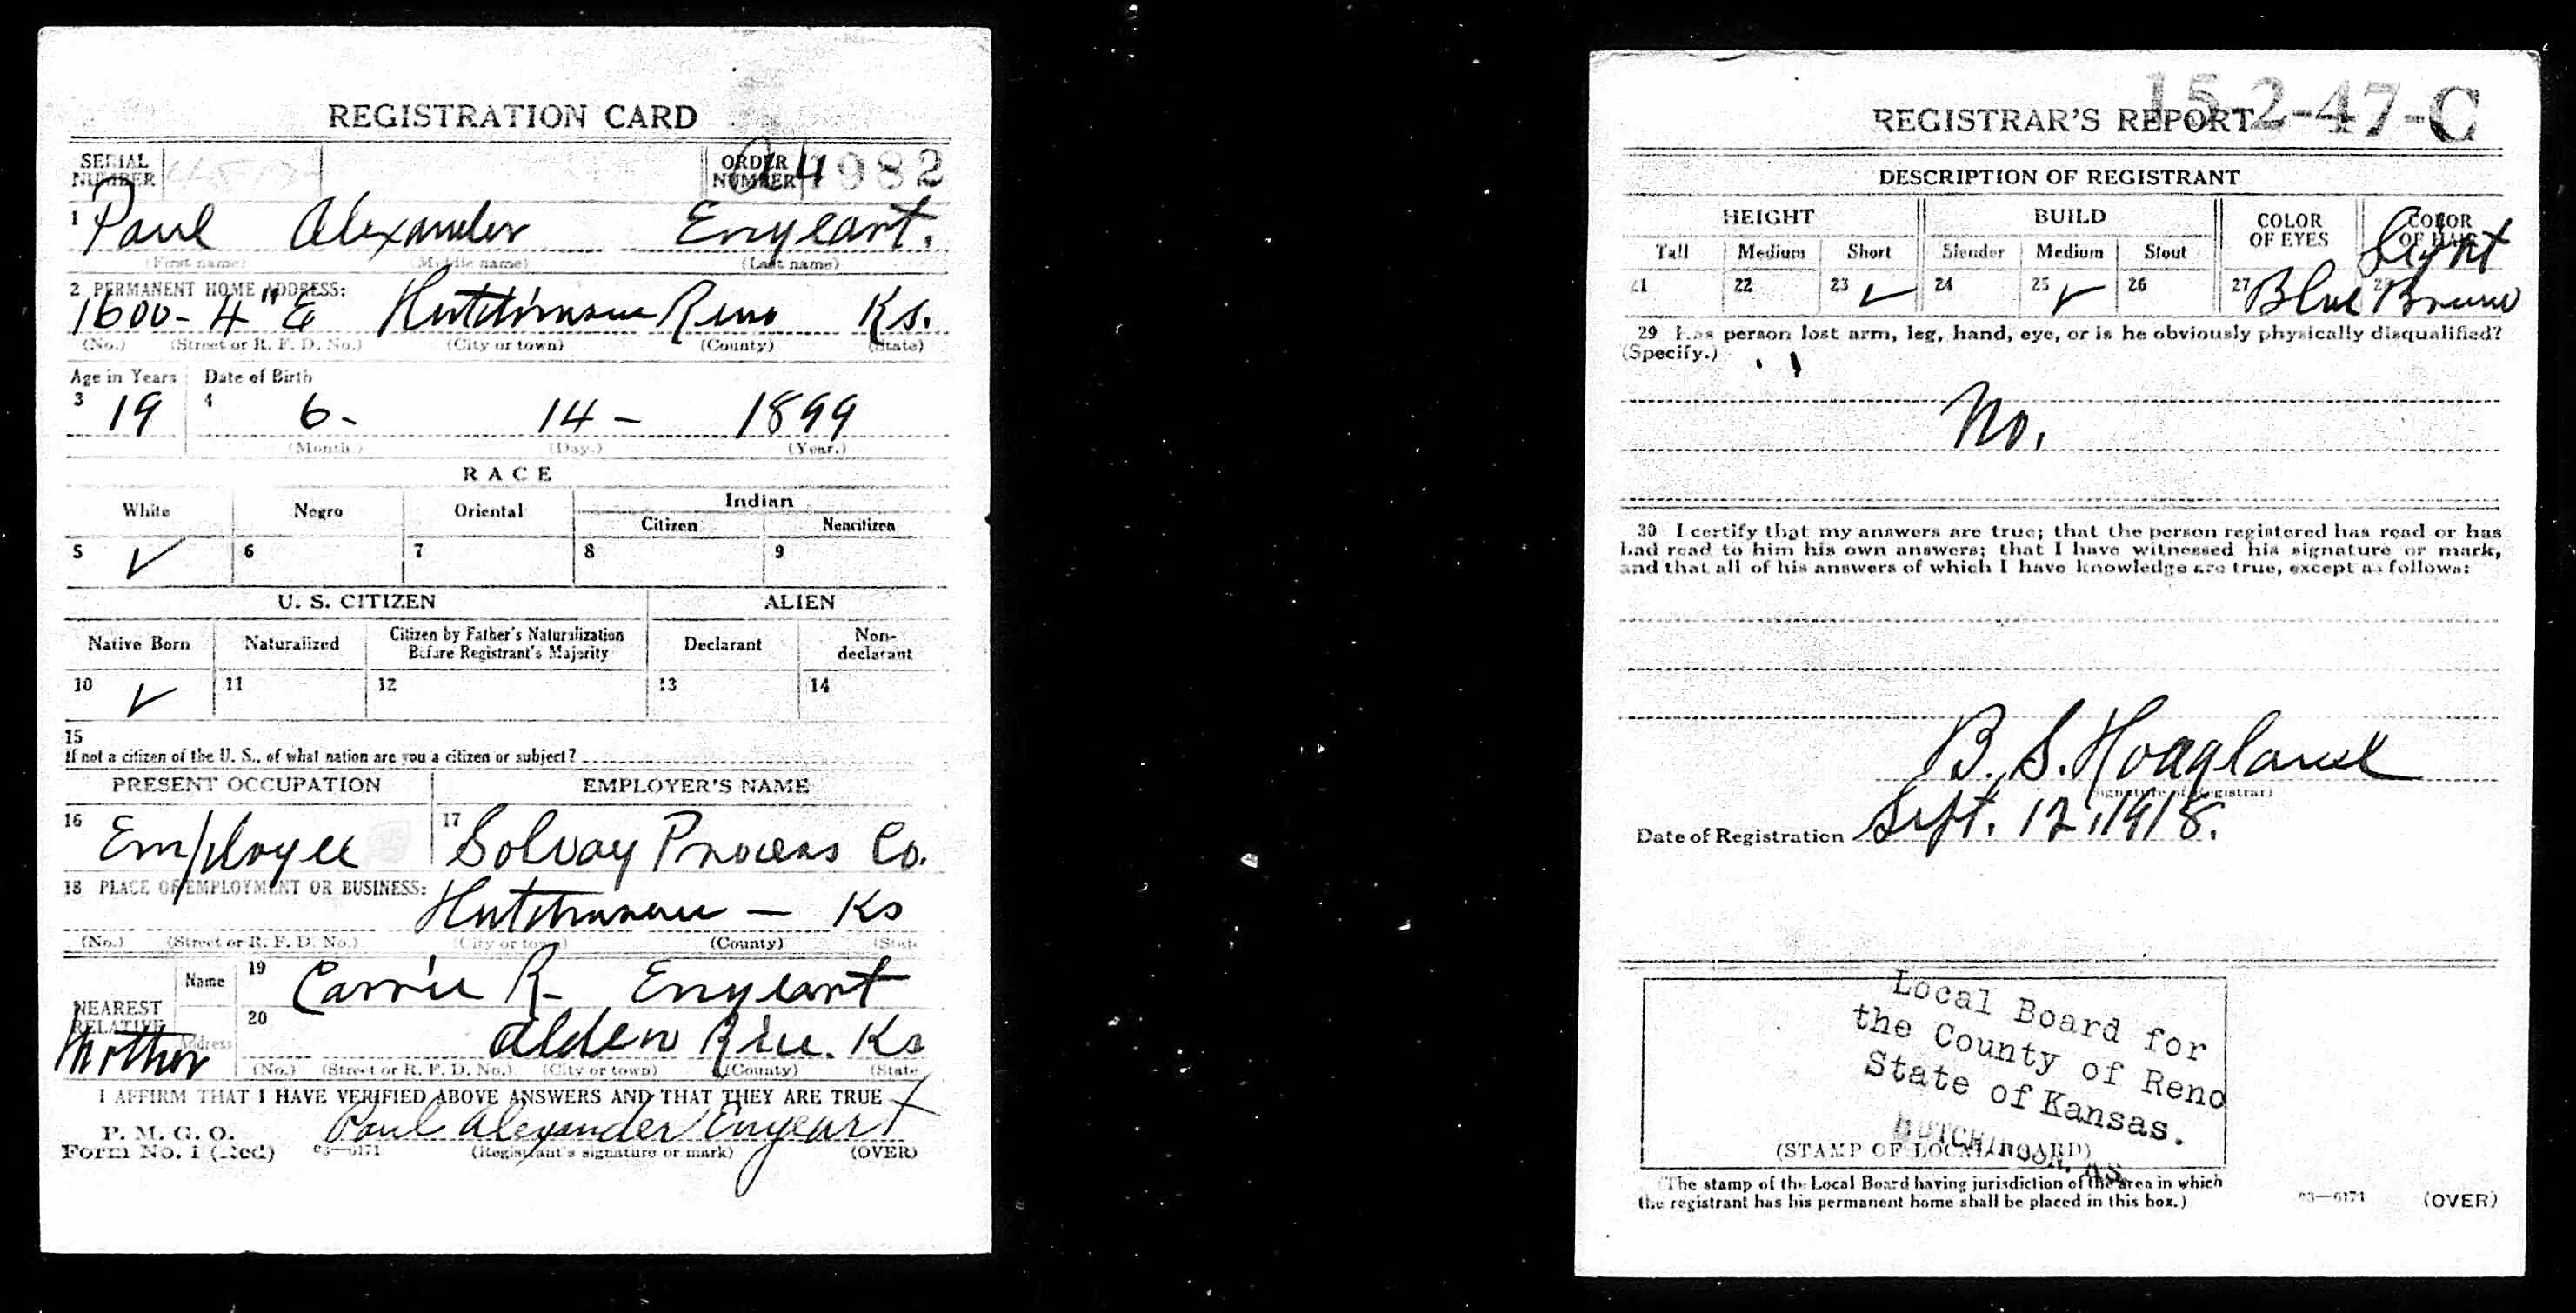 REGISTRATION CARD
SERIAL NUMBER
ORDER NUMBER A 4982
1 Paul Alexander Enyeart.
(First name) (Middle name) (Last name)
2 PERMANENT HOME ADDRESS:
1600 - 4" E Hutchinson Reno Ks.
(No.) (Street or R. F. D. No.) (City or town) (County) (State)
Age in Years Date of Birth
3 19 4 6 - 14 - 1899
(Month.) (Day.) (Year.)
RACE
White Negro Oriental Indian
Citizen Noncitizen
5 ✓ 6 7 8 9
U. S. CITIZEN ALIEN
Native Born Naturalized Citizen by Father's Naturalization Before Registrant's Majority Declarant Non-declarant
10 ✓ 11 12 13 14
15
If not a citizen of the U. S., of what nation are you a citizen or subject?
PRESENT OCCUPATION EMPLOYER'S NAME
16 Employee 17 Solvay Process Co.
18 PLACE OF EMPLOYMENT OR BUSINESS:
Hutchinson - Ks
(No.) (Street or R. F. D. No.) (City or town) (County) (State
NEAREST RELATIVE Name 19 Carrie R. Enyeart
Mother Address 20 Alden Rice. Ks
(No.) (Street or R. F. D. No.) (City or town) (County) (State
I AFFIRM THAT I HAVE VERIFIED ABOVE ANSWERS AND THAT THEY ARE TRUE
P. M. G. O.
Form No. 1 (Red) 03—6171 Paul Alexander Enyeart
(Registrant's signature or mark) (OVER)
15-2-47-C
REGISTRAR'S REPORT
DESCRIPTION OF REGISTRANT
HEIGHT BUILD COLOR OF EYES COLOR OF HAIR
Tall Medium Short Slender Medium Stout
Light
21 22 23 ✓ 24 25 ✓ 26 27 Blue 28 Brown
29 Has person lost arm, leg, hand, eye, or is he obviously physically disqualified?
(Specify.)
No.
30 I certify that my answers are true; that the person registered has read or has
had read to him his own answers; that I have witnessed his signature or mark,
and that all of his answers of which I have knowledge are true, except as follows:
B. S. Hoagland
(Signature of Registrar)
Date of Registration Sept. 12, 1918.
Local Board for
the County of Reno
State of Kansas.
HUTCHINSON, KAS.
(STAMP OF LOCAL BOARD)
(The stamp of the Local Board having jurisdiction of the area in which
the registrant has his permanent home shall be placed in this box.)
03—6171 (OVER)